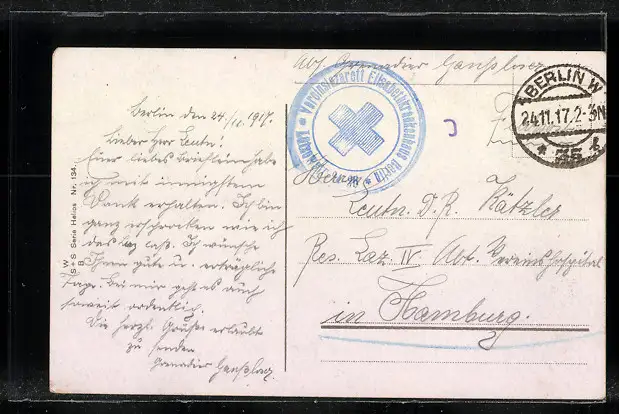 Abs. Grenadier
Berlin den 24./11. 1917.
Lieber Herr Leutn!
Euer liebes Brieflein habe
ich mit innigstem
Dank erhalten. Ich bin
ganz erschrocken wie ich
das las. Ich wünsche
Ihnen gute u. erträgliche
Tage. Bei mir geht es auch
soweit ordentlich.
Die herzl. Grüße erlaubt
zu senden
Grenadier
W. S. S. B. Serie Helios Nr. 134
Vereinslazarett Elisabethkrankenhaus Berlin
BERLIN W
24.11.17.2-3N
* 35
Herrn
Leutn. D. R. Kätzler
Res. Laz. IV Abt. Vereinshospital
in Hamburg.